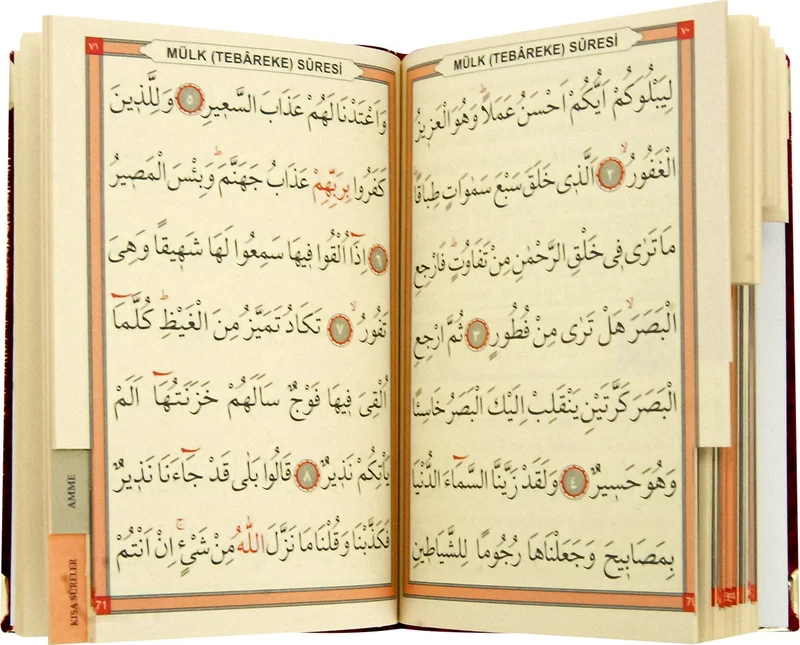 ٧٠
MÜLK (TEBÂREKE) SÛRESİ
لِيَبْلُوَكُمْ اَيُّكُمْ اَحْسَنُ عَمَلًاۜ وَهُوَ الْعَزِيزُ
الْغَفُورُۙ ٢ اَلَّذٖى خَلَقَ سَبْعَ سَمٰوَاتٍ طِبَاقًا
مَا تَرٰى فٖى خَلْقِ الرَّحْمٰنِ مِنْ تَفَاوُتٍۜ فَارْجِعِ
الْبَصَرَۙ هَلْ تَرٰى مِنْ فُطُورٍ ٣ ثُمَّ ارْجِعِ
الْبَصَرَ كَرَّتَيْنِ يَنْقَلِبْ اِلَيْكَ الْبَصَرُ خَاسِئًا
وَهُوَ حَسٖيرٌ ٤ وَلَقَدْ زَيَّنَّا السَّمَٓاءَ الدُّنْيَا
بِمَصَابٖيحَ وَجَعَلْنَاهَا رُجُومًا لِلشَّيَاطٖينِ
٧١
MÜLK (TEBÂREKE) SÛRESİ
وَاَعْتَدْنَا لَهُمْ عَذَابَ السَّعٖيرِ ٥ وَلِلَّذٖينَ
كَفَرُوا بِرَبِّهِمْ عَذَابُ جَهَنَّمَۜ وَبِئْسَ الْمَصٖيرُ
٦ اِذَٓا اُلْقُوا فٖيهَا سَمِعُوا لَهَا شَهٖيقًا وَهِىَ
تَفُورُۙ ٧ تَكَادُ تَمَيَّزُ مِنَ الْغَيْظِۜ كُلَّمَٓا
اُلْقِىَ فٖيهَا فَوْجٌ سَاَلَهُمْ خَزَنَتُهَٓا اَلَمْ
يَاْتِكُمْ نَذٖيرٌ ٨ قَالُوا بَلٰى قَدْ جَٓاءَنَا نَذٖيرٌ
فَكَذَّبْنَا وَقُلْنَا مَا نَزَّلَ اللّٰهُ مِنْ شَىْءٍۚ اِنْ اَنْتُمْ
71
AMME
KISA SÛRELER